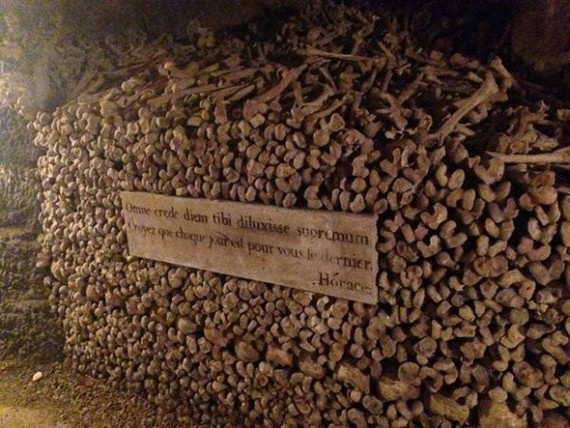 Omne crede diem tibi diluxisse supremum
Croyez que chaque jour est pour vous le dernier.
Horace.